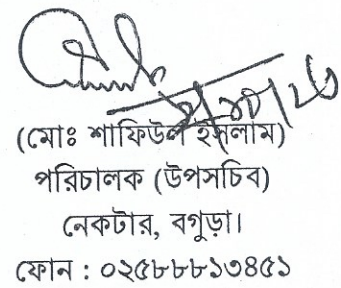 (মোঃ শাফিউল ইসলাম)
পরিচালক (উপসচিব)
নেকটার, বগুড়া।
ফোন : ০২৫৮৮৮১৩৪৫১